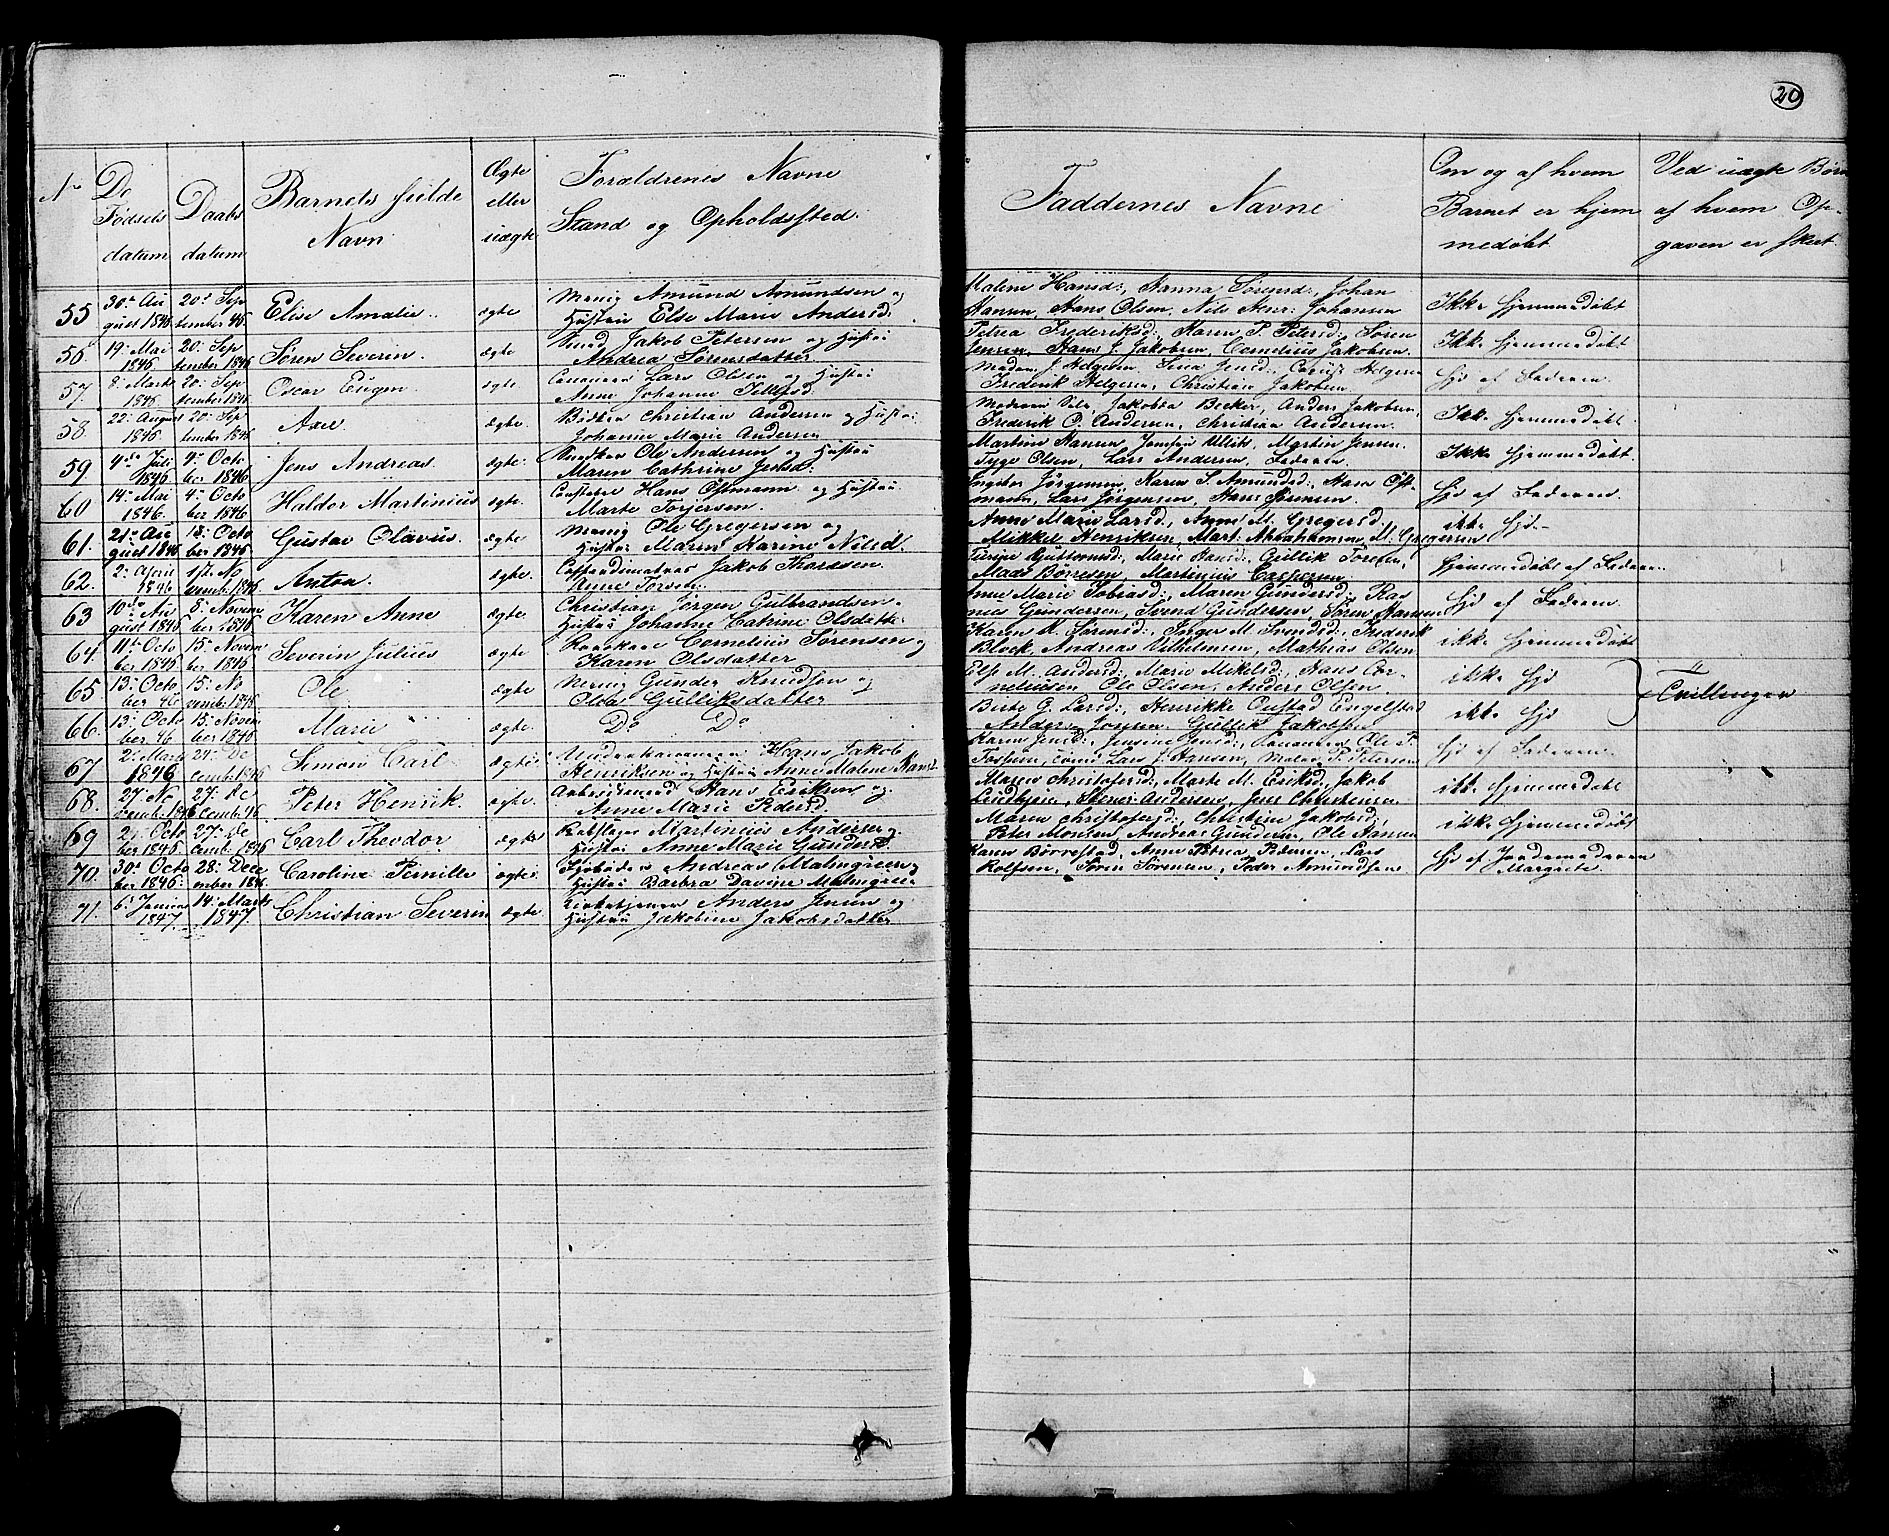 20
No
De Fødsels datum
Daabs datum
Barnets fulde Navn
Ægte eller uægte
Forældrenes Navne Stand og Opholdssted
Faddernes Navne
Om og af hvem Barnet er hjemmedøbt
Ved uægte Børn af hvem Opgaven er skeet
55 30te August 1846 20de September 46 Elise Amalie ægte Amund Amundsen og
Hustru Else Marie Andersd:
Malene Hansd:, Hanna Sørensd:, Johan
Hansen, Hans Olsen, Nils Johansen
Ikke hjemmedøbt
56. 19. Mai 1846 20: September 1846 Søren Severin. ægte Jakob Petersen og Hustru
Andrea Sørensdatter
Petrea Frederiksd: Karen P. Petersd: Søren
Jensen, Hans J. Jakobsen, Cornelius Jakobsen.
Ikke hjemmedøbt
57. 8: Marts 1846 20: September 1846 Oscar Eugen ægte Lars Olsen og Hustru
Anne Johanne
Madam J. Helgesen
Frederik Helgesen, Christian Jakobsen
hjd af Faderen.
58. 22. August 1846 20: September 1846 Axel ægte. Christian Andersen og Hustru
Johanne Marie Andersen
Jakobea Becker, Anders Jakobsen,
Frederik O. Andersen, Christian Andersen.
Ikke hjemmedøbt
59. 4de Juli 1846 4. October 1846 Jens Andreas. ægte. Ole Andersen og Hustru
Maren Cathrine
Martine Hansen, Martin Jensen.
Tyge Olsen, Lars Andersen, Faderen.
Ikke hjemmedøbt.
60 14. Mai 1846. 4. October 1846 Haldor Martinius ægte. Hans Østmann og Hustru
Marte Torjersen.
Ingebor Jørgensen, Karen S. Amundsd:, Hans Øst-
mann, Lars Jørgensen, Hans Sørensen.
hjd af Faderen.
61. 21de August 1846 18: October 1846 Gustav Olavus. ægte Ole Gregersen og
Hustru Maren Karine Nilsd.
Anne Marie Larsd:, Anne M. Gregersd.
Mikkel Henriksen, Mart. Abrahamsen, M. Gregersen
ikke hjd.
62. 2: April 1846 1ste November 1846 Anton. ægte. Jakob Thorssen.
Anne
Marie Hansd:, Gullik
Mads Børresen, Martinius Caspersen
Hjemmedøbt af Faderen.
63 10de August 1846 8: November 1846 Karen Anne ægte. Christian Jørgen Gulbrandsen.
Hustru Johanne Catrine Olsdatter.
Anne Marie Tobiasd:, Maren Gundersd:, Ras-
mus Gundersen, Svend Gundersen, Søren Hansen
hjd af Faderen.
64. 11te October 1846 15: November 1846 Severin Julius ægte Cornelius Sørensen og
Karen Olsdatter
Karen M. Sørensd:, Inger M. Svendsd:, Frederik
Block, Andreas Vilhelmsen, Mathias Olsen
ikke hjemmedøbt
65 13: October 46 15: November 1846 Ole ægte Gunder Knudsen og
Olea Gulliksdatter
Else M. Andersd:, Marie Mikelsd:, Hans Cor-
neliusen Ole Olsen, Anders Olsen.
ikke hjd
Tvillinger
66. 13: October 46 15: November 1846 Marie ægte. Do Do
Birte G. Larsd:, Henrikke
Anders Jonsen. Gullik Jakobsen
ikke hjd
67 2: Marts 1846 24: December 1846 Simon Carl ægte Hans Jakob
Henriksen og Hustru Anne Malene Hansd:
Karen Jensd:, Jensine Jensd:, Ole T.
Lars J. Hansen, P. Petersen
hjd af Faderen.
68. 27. November 1846 27: December 46 Peter Henrik. ægte. Arbeidsmand Hans Eriksen og
Anne Marie Pedersd
Maren Christofersd:, Marte M. Eriksd, Jakob
Lindbjern, Stener Andersen, Jens Christensen
ikke hjemmedøbt
69 2. October 1846. 27: December 1846 Carl Theodor ægte Martinius Andersen og
Hustru Anne Marie Gundersd.
Maren Christofersd:, Christine Jakobsd:,
Peter Monsen, Andreas Gundersen, Ole Hansen
ikke hjemmedøbt
70. 30: October 1846. 28: December 1846 Caroline Pernille ægte Andreas Malmgreen og
Hustru Barbra Davine Malmgreen
Karen Børrestad, Anne Petrea Pedersen, Lars
Rolfsen, Søren Sørensen, Peder Amundsen
hjd af Jordemoderen Margrete.
71. 6. Januar 1847. 14. Marts 1847. Christian Severin ægte. Anders Jensen og
Hustru Jakobine Jakobsdatter